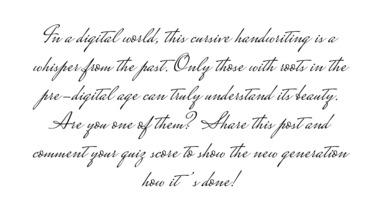 In a digital world, this cursive handwriting is a
whisper from the past. Only those with roots in the
pre-digital age can truly understand its beauty.
Are you one of them? Share this post and
comment your quiz score to show the new generation
how it's done!